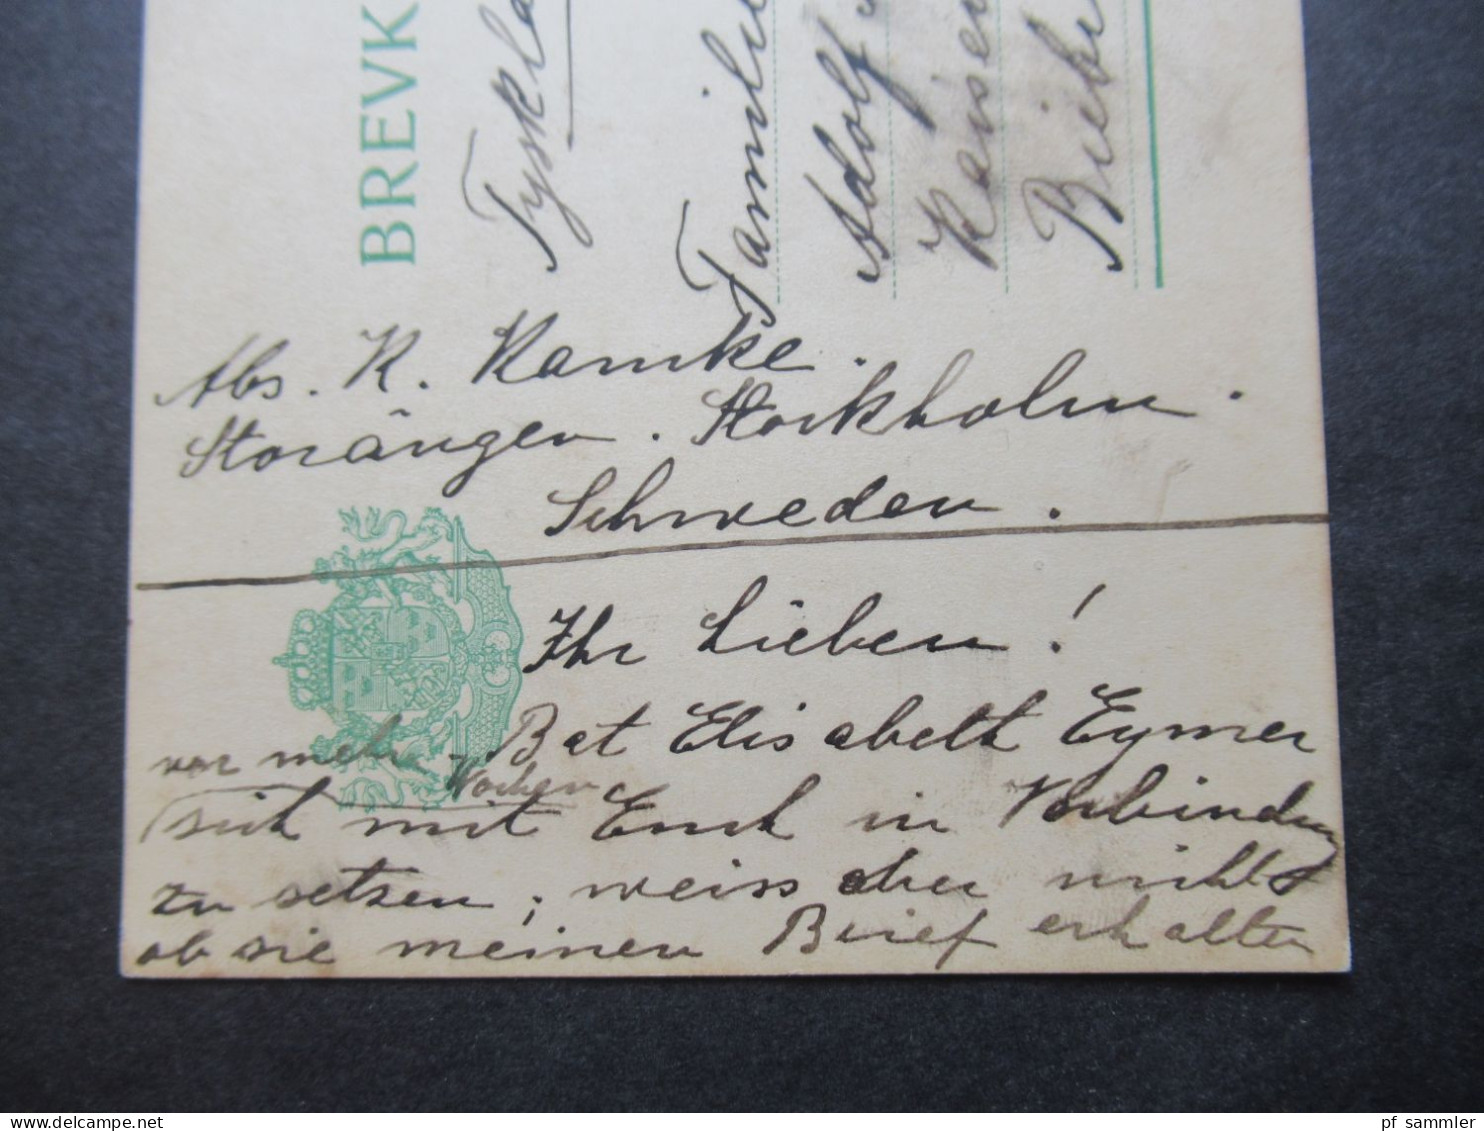 BREVK
Tyskla
Familie
Adolf
Kaiser
Biebr
Abs. K. Ramke.
Storängen. Stockholm.
Schweden.
Ihr Lieben!
Bat Elisabeth Eymer
vor mehr. Wochen
sich mit Euch in Verbindung
zu setzen, weiss aber nicht
ob sie meinen Brief erhalten
pf sammler